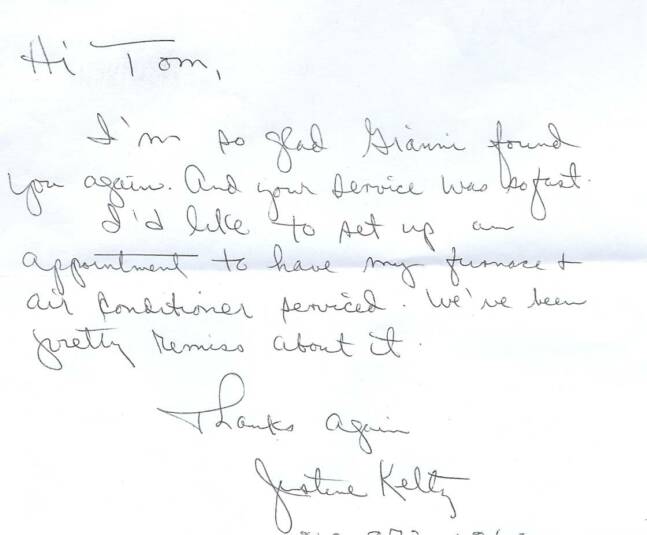 Hi Tom,
I'm so glad Gianni found
you again. And your service was so fast.
I'd like to set up an
appointment to have my furnace +
air conditioner serviced. We've been
pretty remiss about it.
Thanks again
Justine Keltz